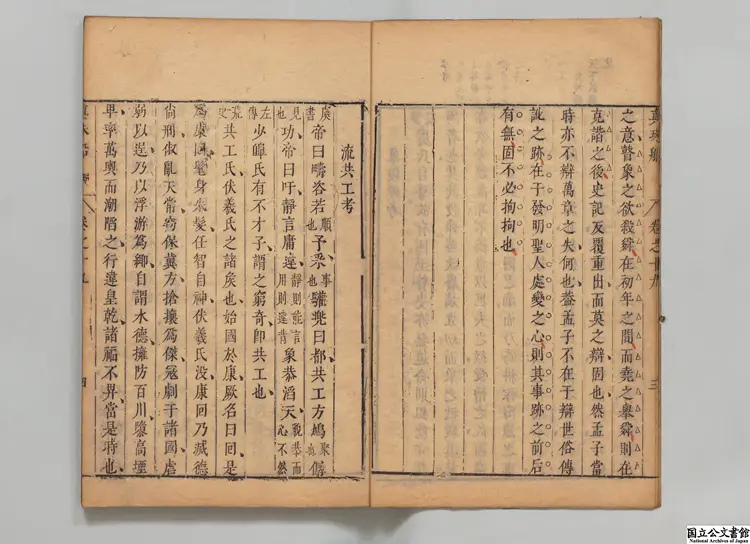 之意瞽象之欲殺舜在初年之間而堯之舉舜則在
克諧之後史記反覆重出而莫之辯固也然孟子當
時亦不辯萬章之失何也蓋孟子不在于辯世俗傳
訛之跡在于發明聖人處變之心則其事跡之前后
有無固不必拘拘也
真珠船
卷之十九
三
流共工考
虞書帝曰疇咨若順也予采事也驩兜曰都共工方鳩聚也僝
見也功帝曰吁靜言庸違靜則能言用則違背象恭滔天貌恭而心不然
左傳少皥氏有不才子謂之窮奇即共工也
荒史共工氏伏羲氏之諸侯也始國於康厥名曰回是
為康回髦身朱髮任智自神伏羲氏沒康回乃滅德
尚刑俶亂天常竊保冀方搶攘為傑冦劇于諸國虐
弱以逞乃以浮游為卿自謂水德擁防百川隳高堙
卑率萬輿而潮脣之行違皇乾諸福不畀當是時也
卷之十九
四
國立公文書館
National Archives of Japan